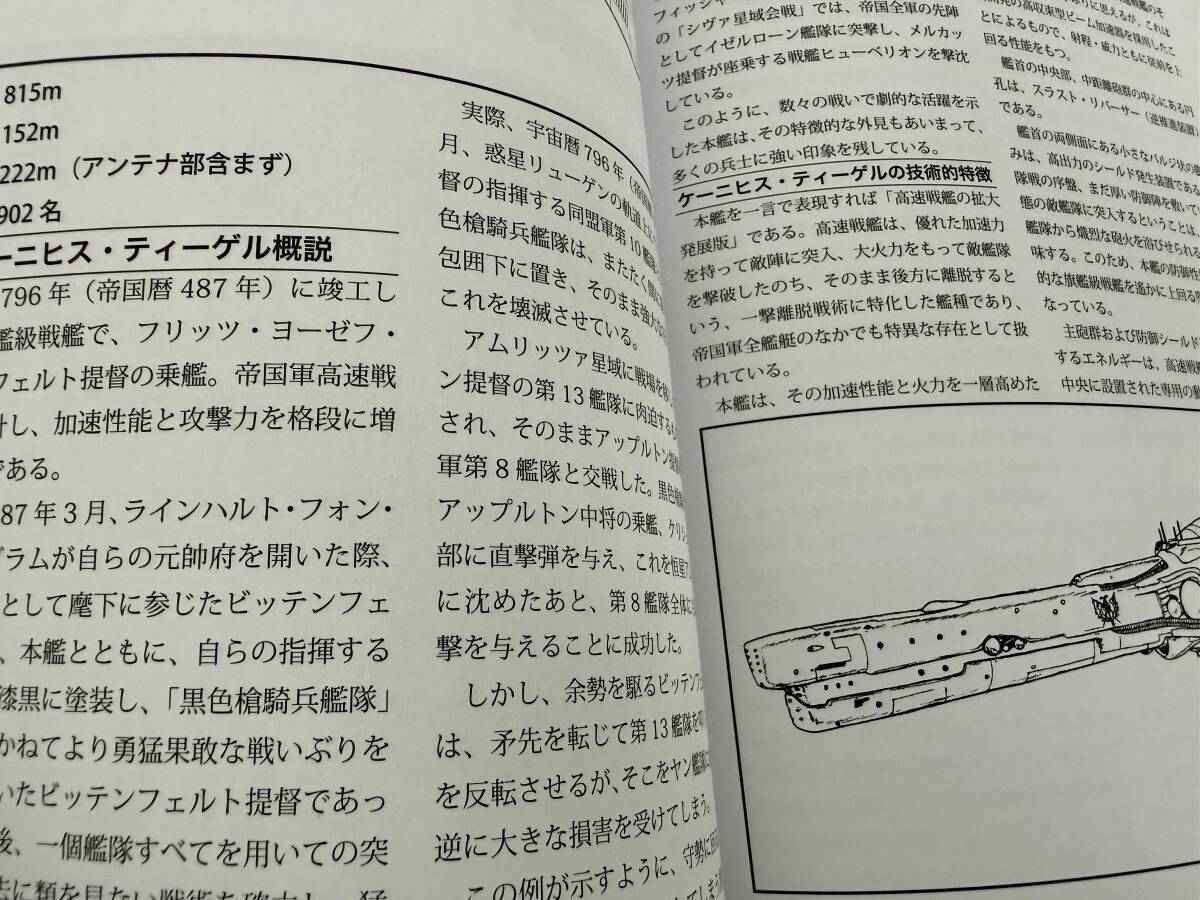 815m
152m
222m（アンテナ部含まず）
902名
ーニヒス・ティーゲル概説
796年（帝国暦487年）に竣工し
艦級戦艦で、フリッツ・ヨーゼフ・
フェルト提督の乗艦。帝国軍高速戦
し、加速性能と攻撃力を格段に増
である。
87年3月、ラインハルト・フォン・
グラムが自らの元帥府を開いた際、
として麾下に参じたビッテンフェ
、本艦とともに、自らの指揮する
漆黒に塗装し、「黒色槍騎兵艦隊」
かねてより勇猛果敢な戦いぶりを
いたビッテンフェルト提督であっ
後、一個艦隊すべてを用いての突
に類を見ない戦術を
実際、宇宙暦796年（
月、惑星リューゲンの軌道上
督の指揮する同盟軍第10艦隊
色槍騎兵艦隊は、またたく間
包囲下に置き、そのまま強大な
これを壊滅させている。
アムリッツァ星域に戦場を移し
ン提督の第13艦隊に肉迫するも
され、そのままアップルトン提督
軍第8艦隊と交戦した。黒色槍
アップルトン中将の乗艦、クリシ
部に直撃弾を与え、これを恒星ア
に沈めたあと、第8艦隊全体に
撃を与えることに成功した。
しかし、余勢を駆るビッテンフ
は、矛先を転じて第13艦隊を
を反転させるが、そこをヤン艦隊
逆に大きな損害を受けてしまう。
この例が示すように、守勢に回
てしまう
フィッシャー
の「シヴァ星域会戦」では、帝国全軍の先陣
としてイゼルローン艦隊に突撃し、メルカッ
ツ提督が座乗する戦艦ヒューベリオンを撃沈
している。
このように、数々の戦いで劇的な活躍を示
した本艦は、その特徴的な外見もあいまって、
多くの兵士に強い印象を残している。
ケーニヒス・ティーゲルの技術的特徴
本艦を一言で表現すれば「高速戦艦の拡大
発展版」である。高速戦艦は、優れた加速力
を持って敵陣に突入、大火力をもって敵艦隊
を撃破したのち、そのまま後方に離脱すると
いう、一撃離脱戦術に特化した艦種であり、
帝国軍全艦艇のなかでも特異な存在として扱
われている。
本艦は、その加速性能と火力を一層高めた
速戦艦のそ
りに思えるが、これは
開発の高収束型ビーム加速器を採用したこ
とによるもので、射程・威力ともに従前を上
回る性能をもつ。
艦首の中央部、中距離砲群の中心にある円
孔は、スラスト・リバーサー（逆推進装置
である。
艦首の両側面にある小さなバルジ状の
みは、高出力のシールド発生装置である
隊戦の序盤、まだ厚い防御陣を敷いて
態の敵艦隊に突入するということは、
艦隊から熾烈な砲火を浴びせられる
味する。このため、本艦の防御性
的な旗艦級戦艦を遥かに上回る
なっている。
主砲群および防御シールド
するエネルギーは、高速戦
中央に設置された専用の動